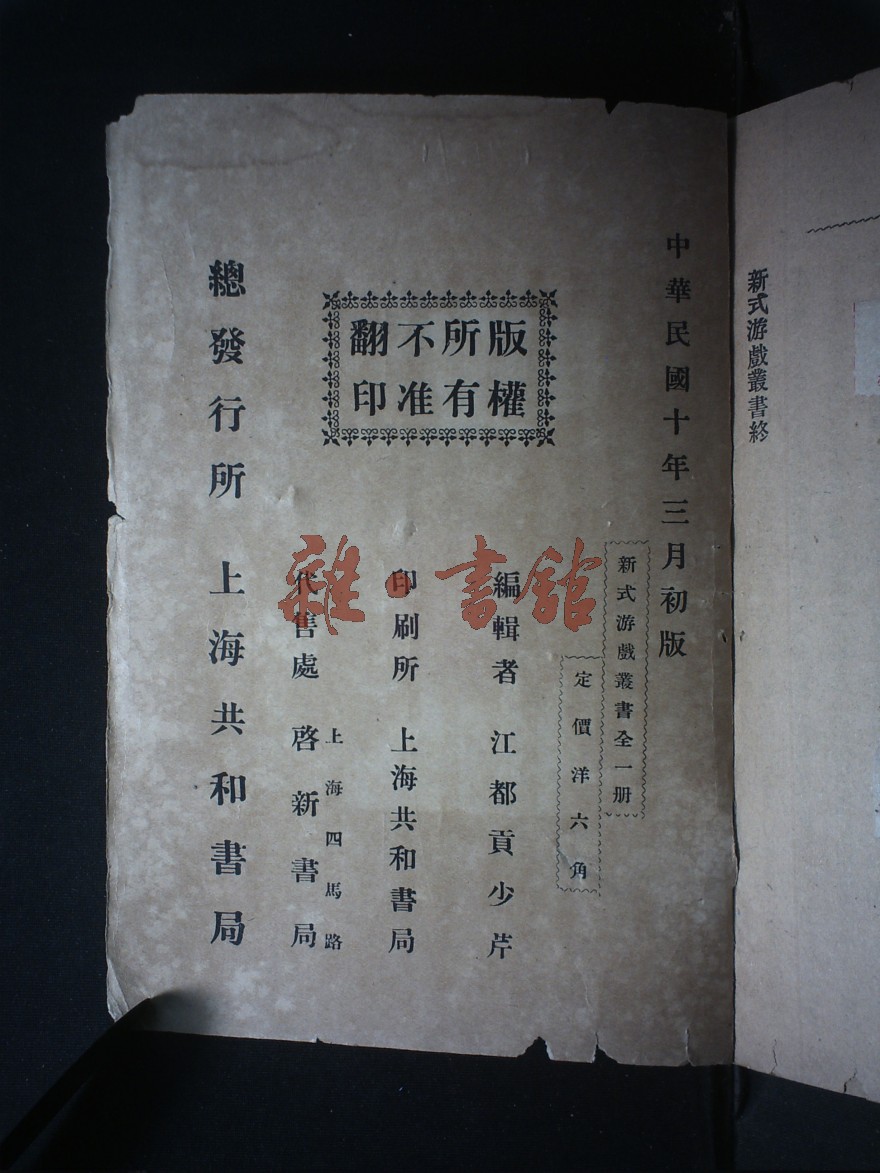 新式游戲叢書終
中華民國十年三月初版
新式游戲叢書全一册
定價洋六角
版權
所有
不准
翻印
編輯者 江都貢少芹
印刷所 上海共和書局
上海四馬路
代售處 啓新書局
總發行所 上海共和書局
雜·書館